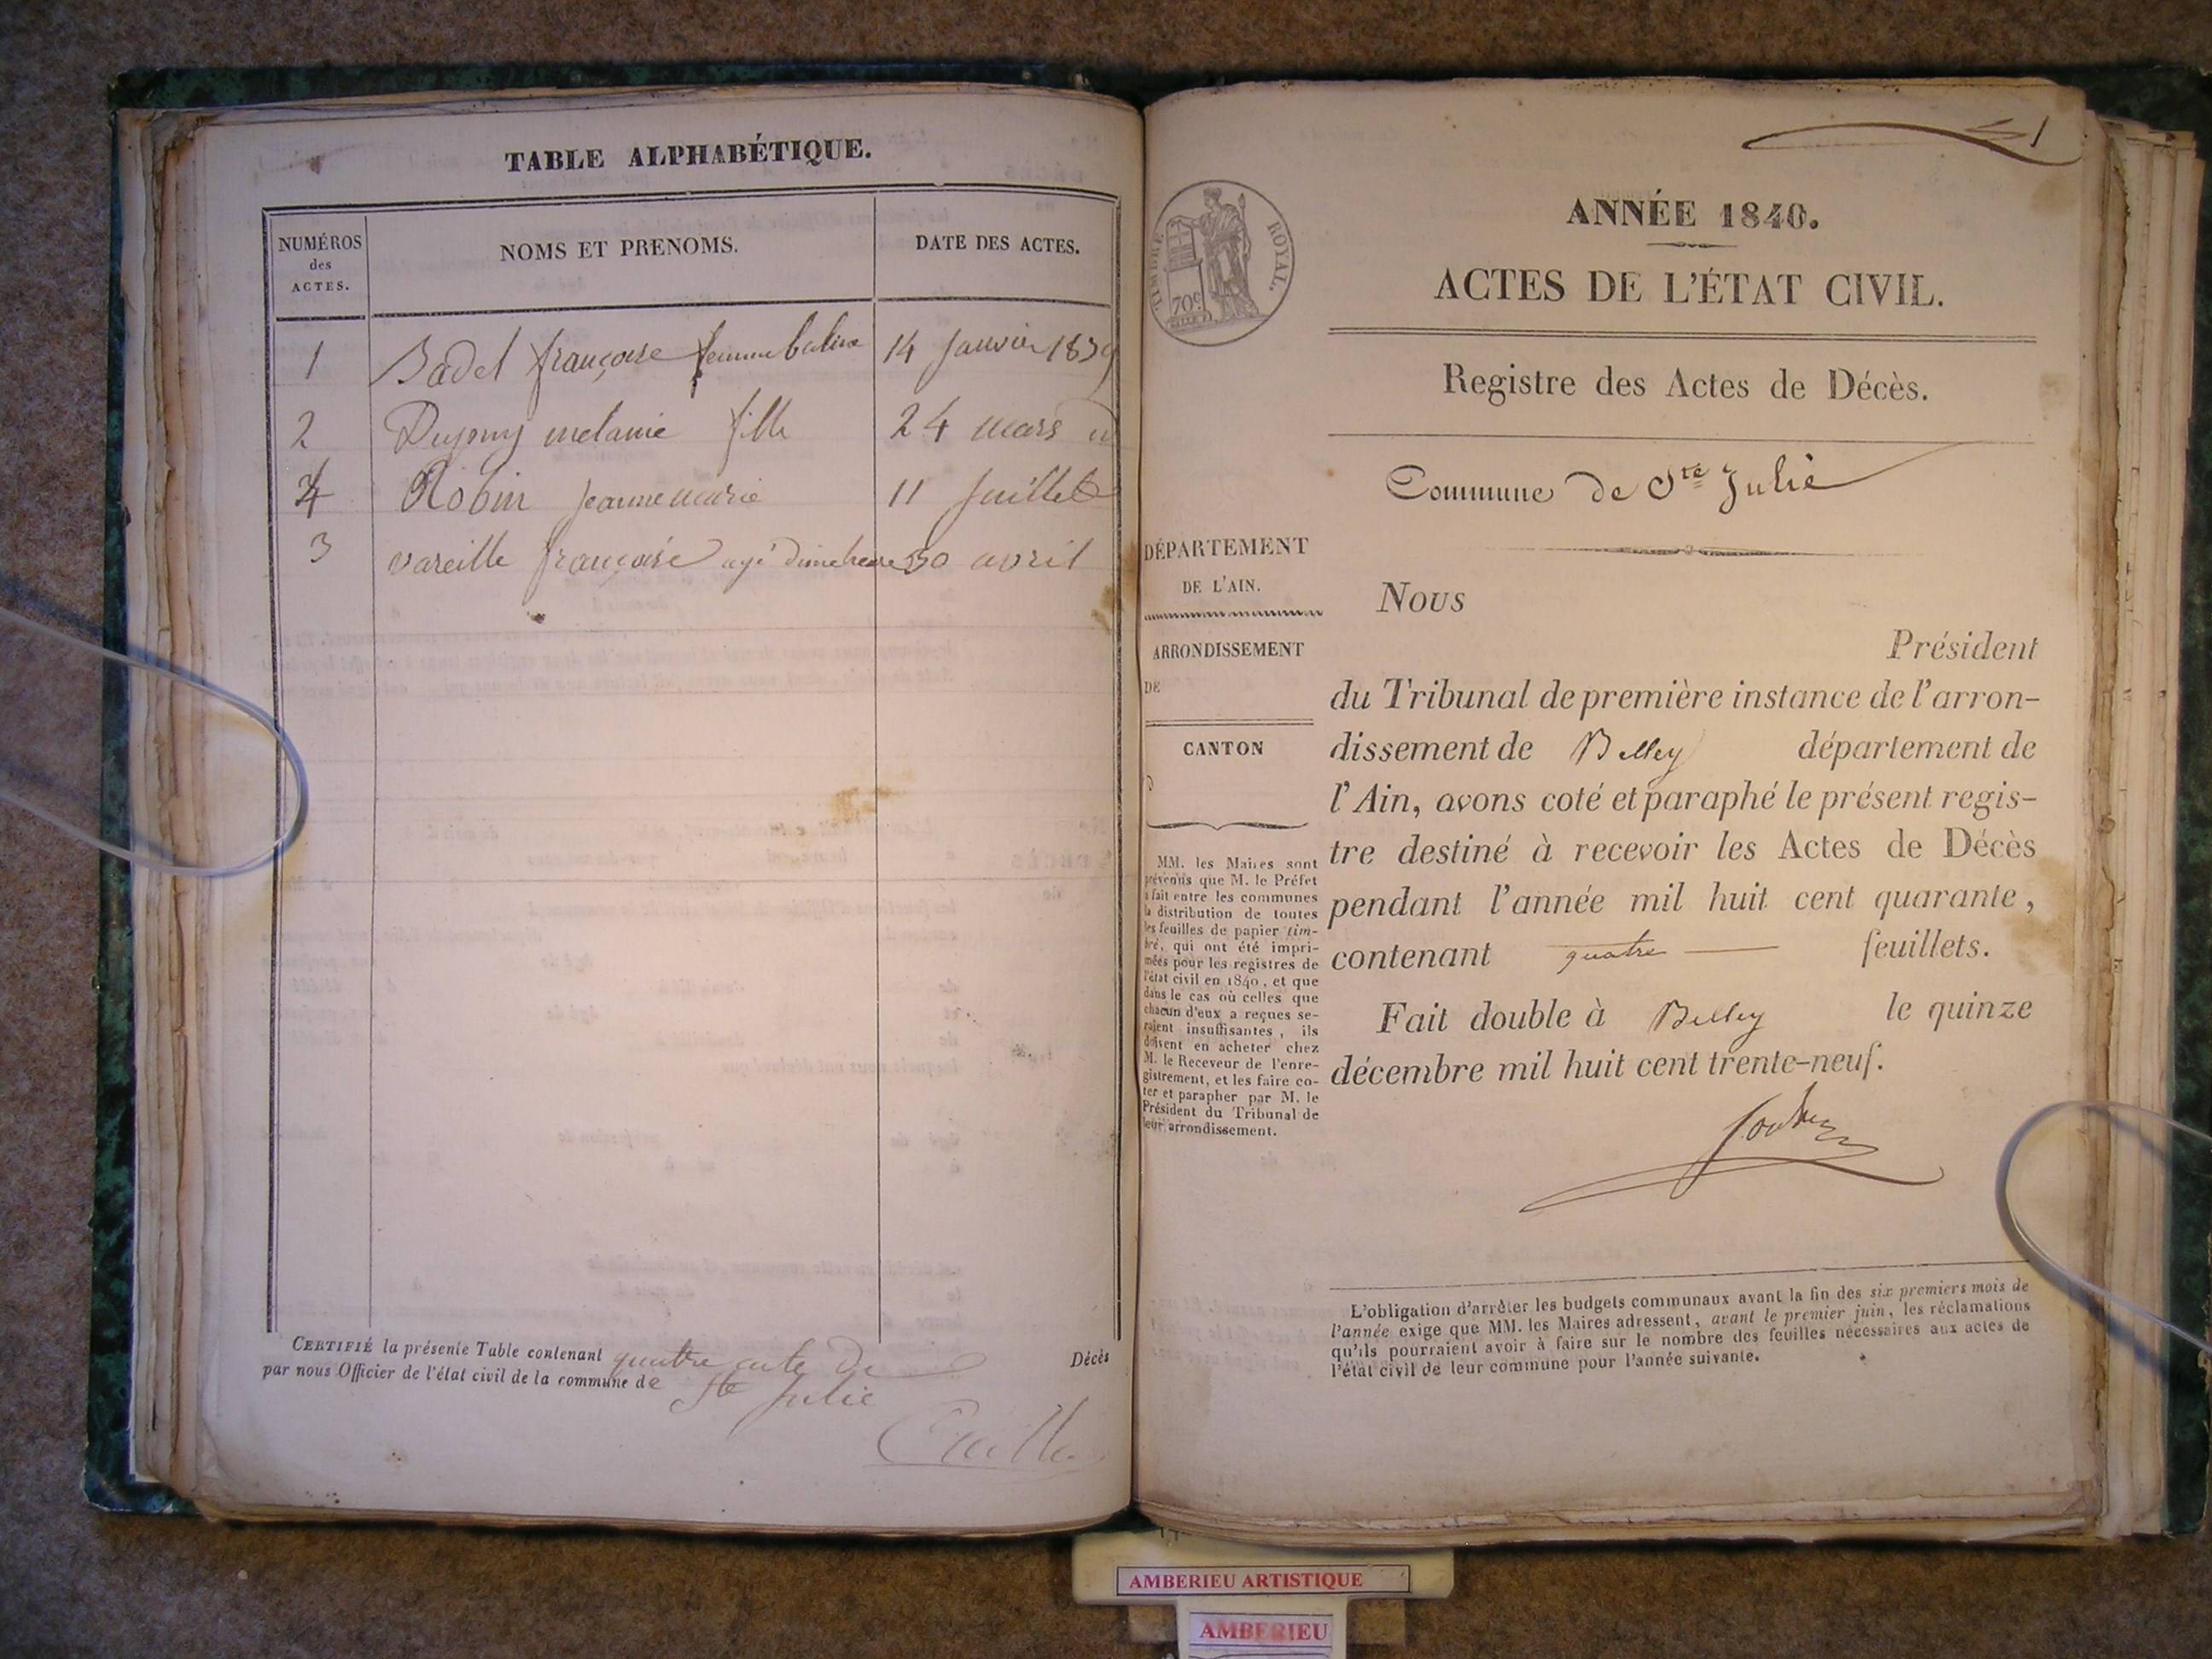 TABLE ALPHABÉTIQUE.
NUMÉROS
des
ACTES.
NOMS ET PRENOMS.
DATE DES ACTES.
1 Badel françoise femme 14 Janvier 1839
2 melanie fille 24 mars
4 Robin jeanne marie 11 Juillet
3 vareille françoise agé 30 avril
CERTIFIÉ la présente Table contenant quatre acte De Décès
par nous Officier de l'état civil de la commune de Ste Julie
1
TIMBRE ROYAL.
70c
ANNÉE 1840.
ACTES DE L'ÉTAT CIVIL.
Registre des Actes de Décès.
Commune de Ste Julie
DÉPARTEMENT
DE L'AIN.
ARRONDISSEMENT
DE
CANTON
MM. les Maires sont
prévenus que M. le Préfet
a fait entre les communes
la distribution de toutes
les feuilles de papier tim-
bré, qui ont été impri-
mées pour les registres de
l'état civil en 1840, et que
dans le cas où celles que
chacun d'eux a reçues se-
raient insuffisantes, ils
doivent en acheter chez
M. le Receveur de l'enre-
gistrement, et les faire co-
ter et parapher par M. le
Président du Tribunal de
leur arrondissement.
Nous
Président
du Tribunal de première instance de l'arron-
dissement de Belley département de
l'Ain, avons coté et paraphé le présent regis-
tre destiné à recevoir les Actes de Décès
pendant l'année mil huit cent quarante,
contenant quatre feuillets.
Fait double à Belley le quinze
décembre mil huit cent trente-neuf.
L'obligation d'arrêter les budgets communaux avant la fin des six premiers mois de
l'année exige que MM. les Maires adressent, avant le premier juin, les réclamations
qu'ils pourraient avoir à faire sur le nombre des feuilles nécessaires aux actes de
l'état civil de leur commune pour l'année suivante.
AMBERIEU ARTISTIQUE
AMBERIEU